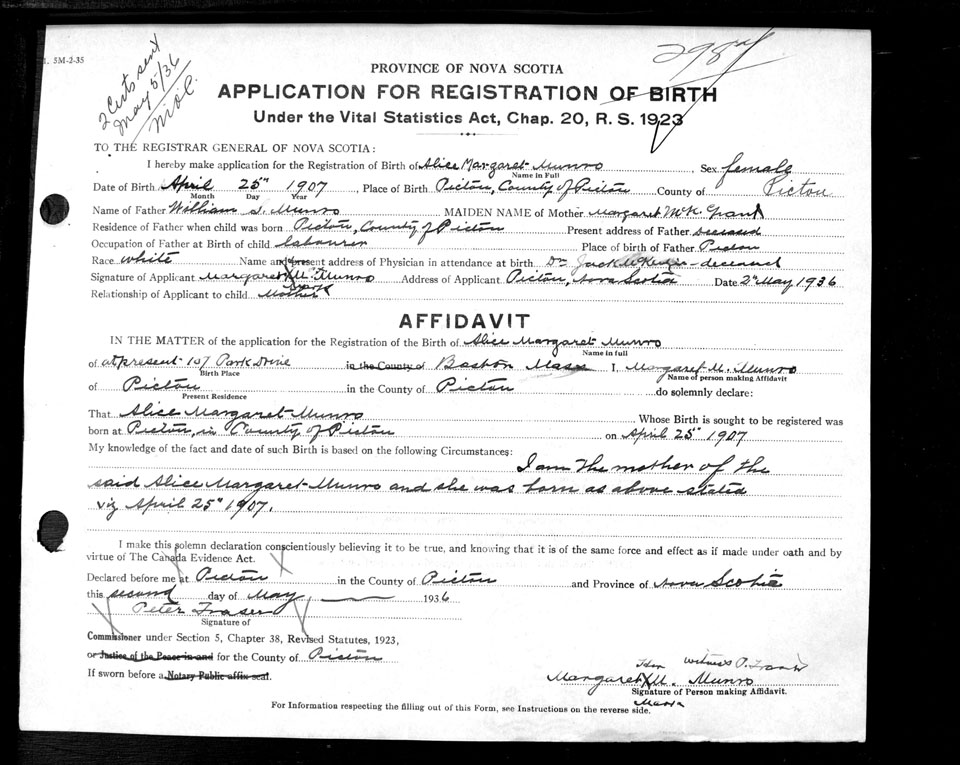 1. 5M-2-35
2 Certs sent
May 5/36
298
PROVINCE OF NOVA SCOTIA
APPLICATION FOR REGISTRATION OF BIRTH
Under the Vital Statistics Act, Chap. 20, R. S. 1923
TO THE REGISTRAR GENERAL OF NOVA SCOTIA:
I hereby make application for the Registration of Birth of Alice Margaret Munro Sex female
Name in Full
Date of Birth April 25th 1907, Place of Birth Pictou, County of Pictou County of Pictou
Month Day Year
Name of Father William Munro MAIDEN NAME of Mother Margaret Grant
Residence of Father when child was born Pictou, County of Pictou Present address of Father Deceased
Occupation of Father at Birth of child Labourer Place of birth of Father Pictou
Race white Name and present address of Physician in attendance at birth Dr Jack McKenzie - deceased
Signature of Applicant Margaret M. Munro Address of Applicant Pictou, Nova Scotia Date 2nd May 1936
Relationship of Applicant to child Mother mark
AFFIDAVIT
IN THE MATTER of the application for the Registration of the Birth of Alice Margaret Munro
Name in full
of at present 107 Park Drive in the County of Boston Mass I, Margaret M. Munro
Birth Place Name of person making Affidavit
of Pictou in the County of Pictou do solemnly declare:
Present Residence
That Alice Margaret Munro Whose Birth is sought to be registered was
born at Pictou, in County of Pictou on April 25th 1907
My knowledge of the fact and date of such Birth is based on the following Circumstances:
I am the mother of the
said Alice Margaret Munro and she was born as above stated
viz April 25th 1907.
I make this solemn declaration conscientiously believing it to be true, and knowing that it is of the same force and effect as if made under oath and by
virtue of The Canada Evidence Act.
Declared before me at Pictou in the County of Pictou and Province of Nova Scotia
this second day of May 1936
Peter Fraser
Signature of
Commissioner under Section 5, Chapter 38, Revised Statutes, 1923,
or Justice of the Peace in and for the County of Pictou
If sworn before a Notary Public affix seal.
her witness P. Fraser
Margaret X M. Munro
Signature of Person making Affidavit.
Mark
For Information respecting the filling out of this Form, see Instructions on the reverse side.